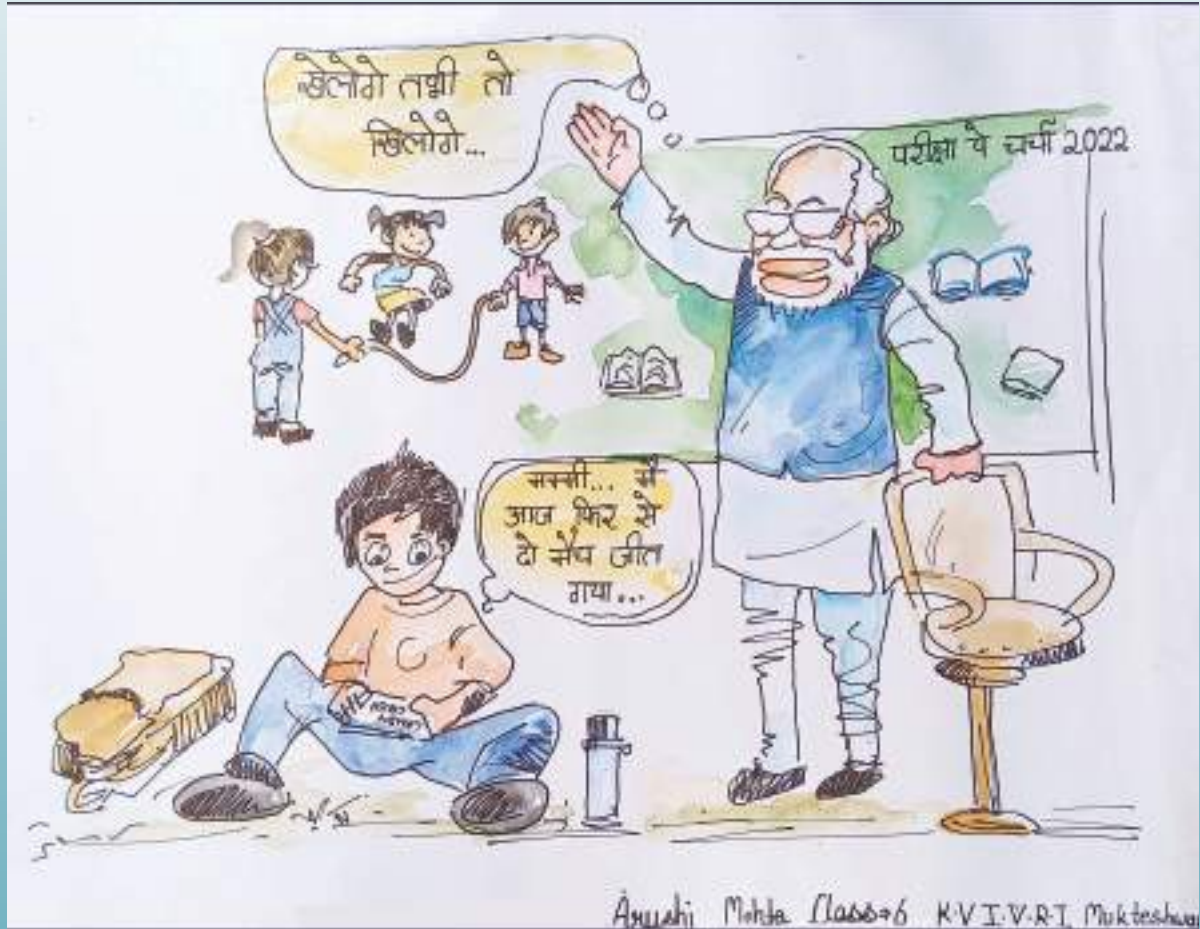 खेलोगे तभी तो
खिलोगे...
परीक्षा पे चर्चा 2022
मम्मी... मैं
आज फिर से
दो मैच जीत
गया...
Arushi Mehta Class-6 K.V I.V.R.I. Mukteshwar